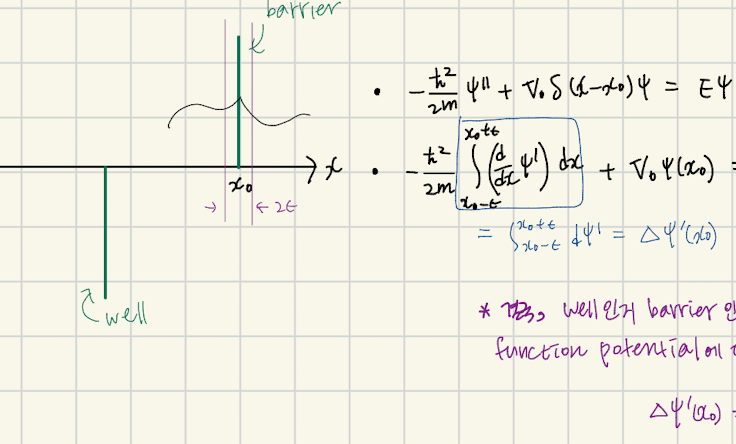 barrier
• -ħ²/2m ψ'' + V₀ δ(x-x₀)ψ = Eψ
x
• -ħ²/2m ∫_{x₀-ε}^{x₀+ε} (d/dx ψ') dx + V₀ψ(x₀) =
x₀
→ ← 2ε
= ∫_{x₀-ε}^{x₀+ε} dψ' = Δψ'(x₀)
well
* 결국, well인지 barrier인
function potential에
Δψ'(x₀) =